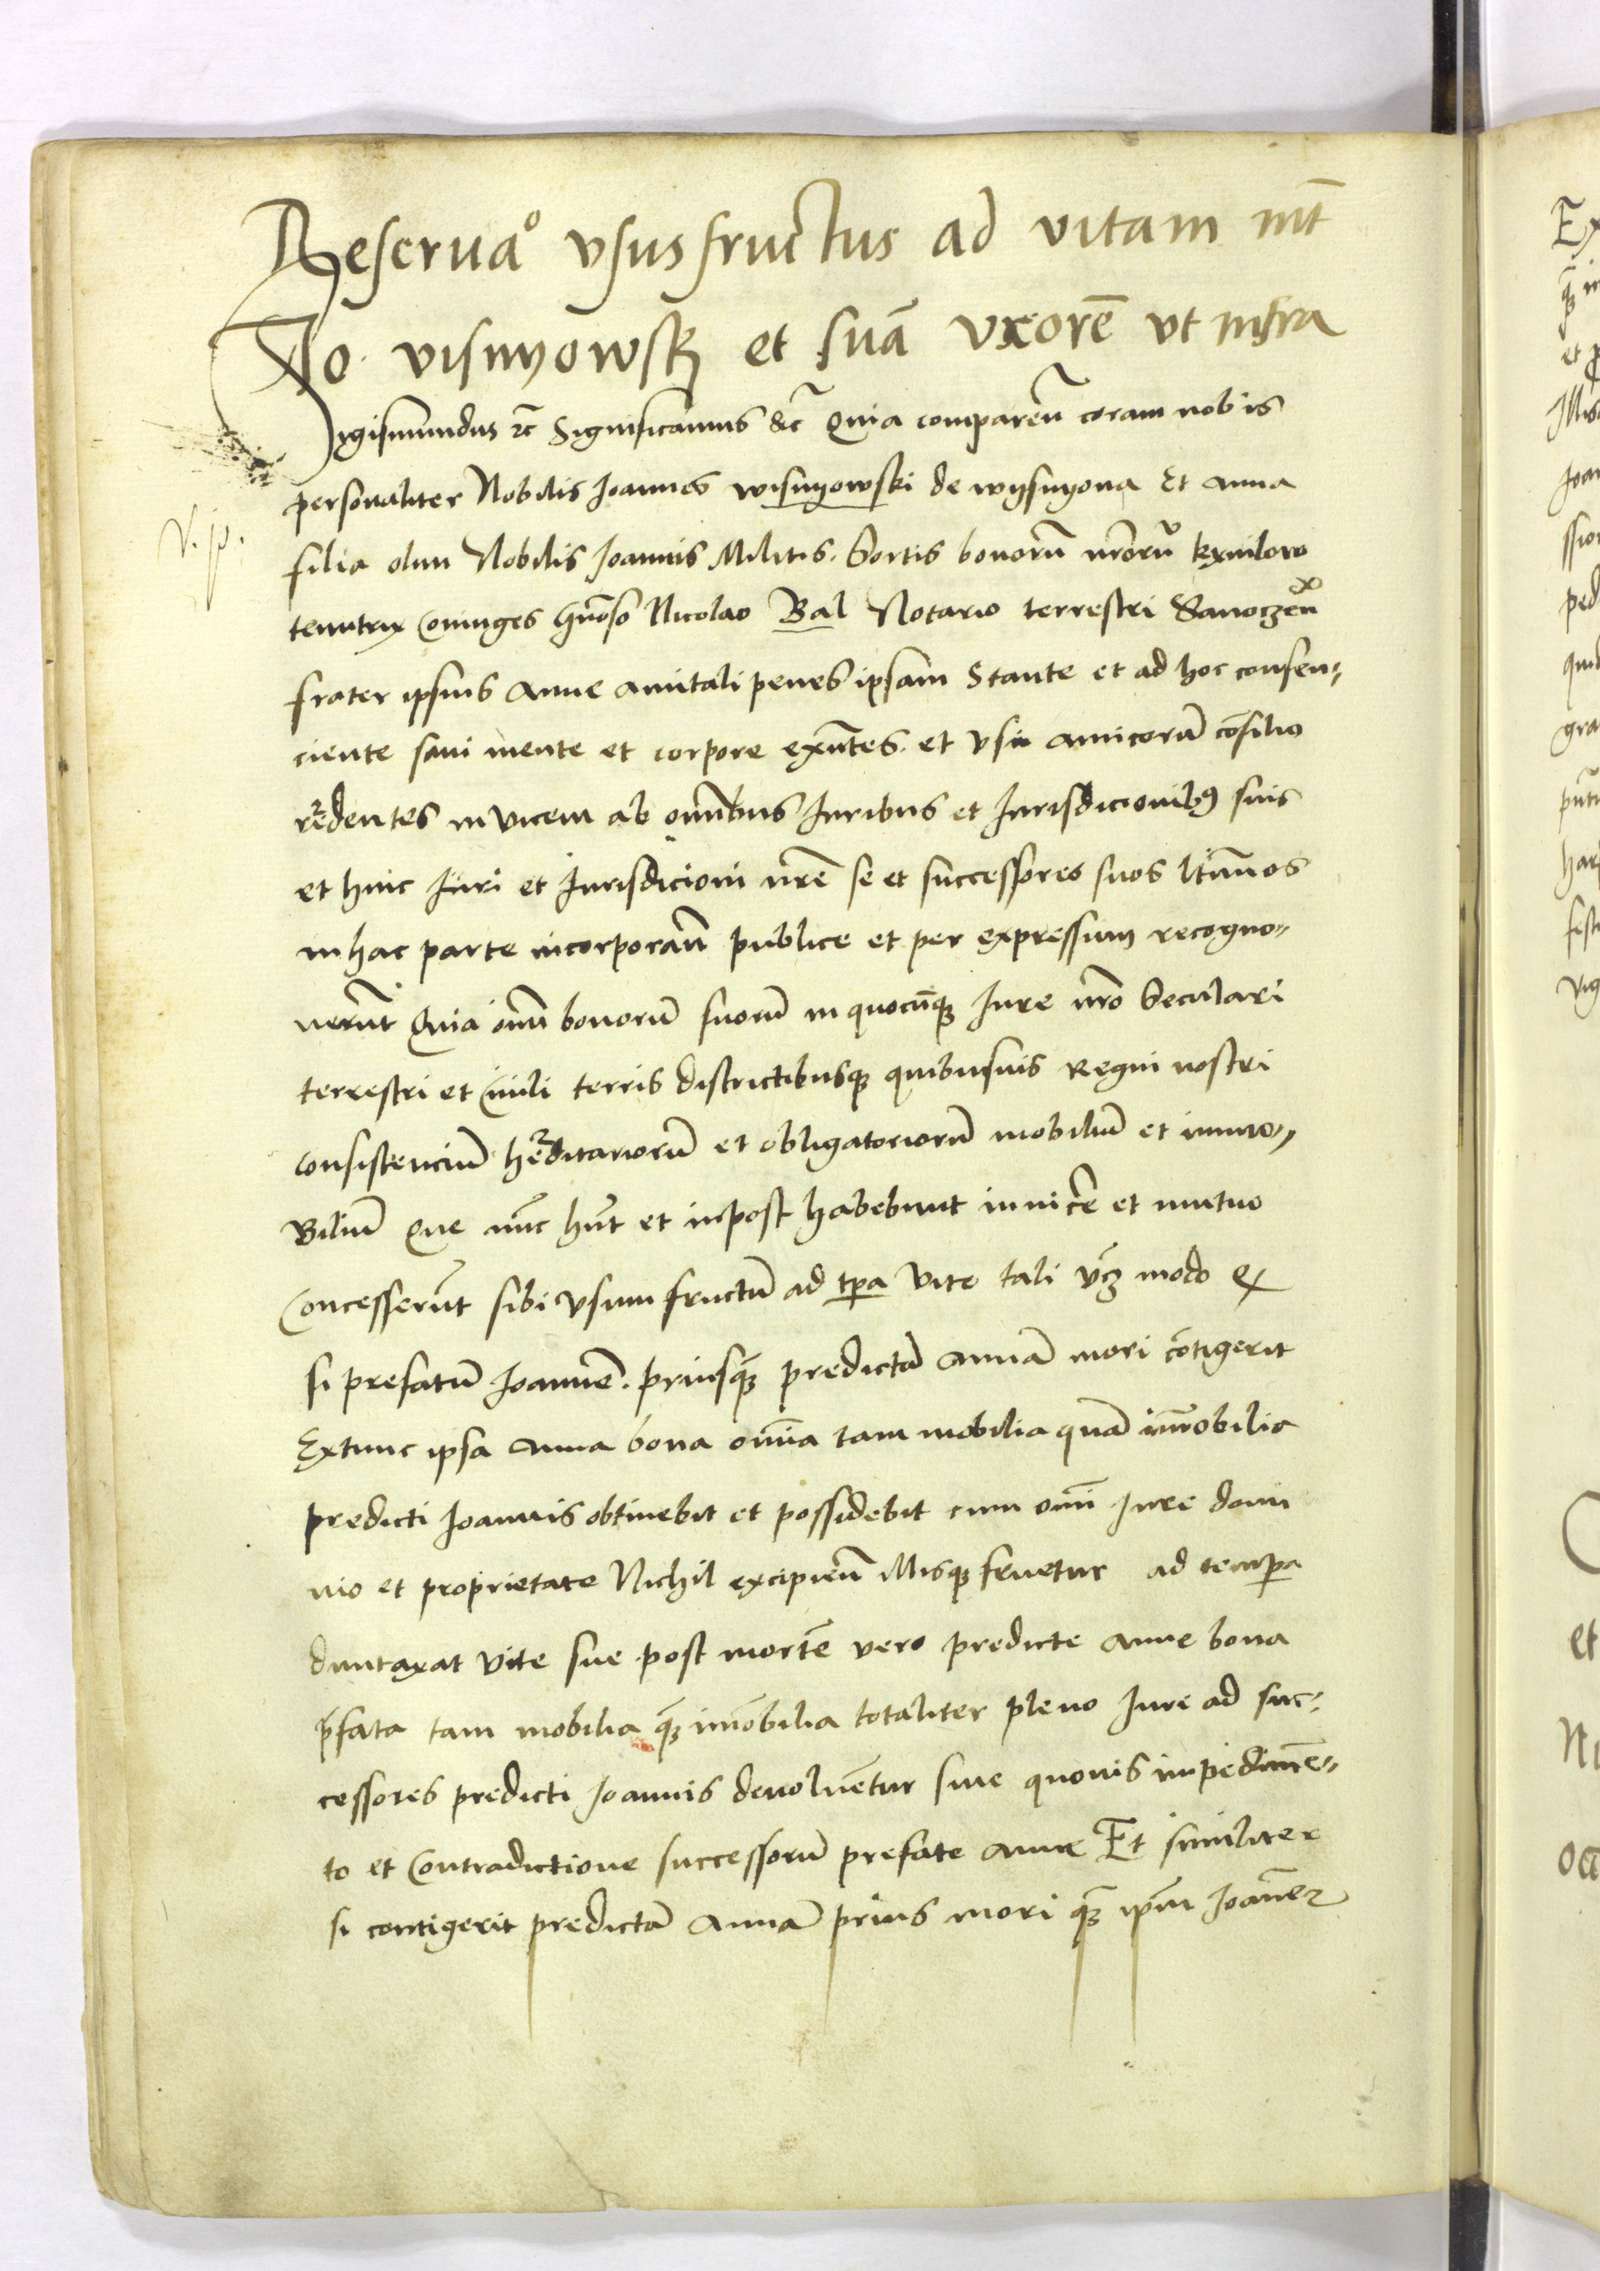 Reserua° vsusfructus ad vitam int̄
Jo. visnyowskj et suā vxorē vt infra
Sigismundus rc̄ Significamus &c̄ Quia comparen̄ coram nobis
personaliter Nobilis Joannes wisnyowski de wysnyowa Et Anna
filia olim Nobilis Joannis Militis. Sortis bonorū nrōrū
tenutrix Coniuges Gn̄oso Nicolao Bal Notario terrestri Sanoczen̄
V. p.
frater ipsius Anne Amitali penes ipsam Stante et ad hoc consen-
ciente sani mente et corpore exn̄tes. et vsi amicorū cōsilio
rēdentes in vicem ab omnibus Juribus et Jurisdicionibꝰ suis
et huic Juri et Jurisdicioni nrē se et successores suos ltīmos
in hac parte incorporan̄ publice et per expressum recogno-
uerūt Quia om̄ bonorū suorū in quocūqꝫ Jure nrō Seculari
terrestri et Ciuili terris districtibusqꝫ quibusuis Regni nostri
consistenciū herēditariorū et obligatoriorū mobiliū et immo-
Biliū Que nūc hn̄t et inpost habebunt inuicē et mutuo
Concesserūt sibi vsumfructū ad tpa vite tali vcꝫ modo ꝙ
si prefatū Joannē. priusqꝫ̄ predictā Annā mori cōtigerit
Extunc ipsa Anna bona om̄ia tam mobilia quā im̄obilia
predicti Joannis obtinebit et possidebit cum om̄i Jure domi
nio et proprietate Nichil excipien̄ illisqꝫ fruetur ad tempa
duntaxat vite sue. post mortē vero predicte Anne bona
p̄fata tam mobilia qꝫ̄ im̄obilia totaliter pleno Jure ad suc-
cessores predicti Joannis deuoluentur sine quouis impedimē-
to et Contradictione successorū prefate Anne Et similiter
si contigerit predictā Annā prius mori qꝫ̄ ipm̄ Joannē